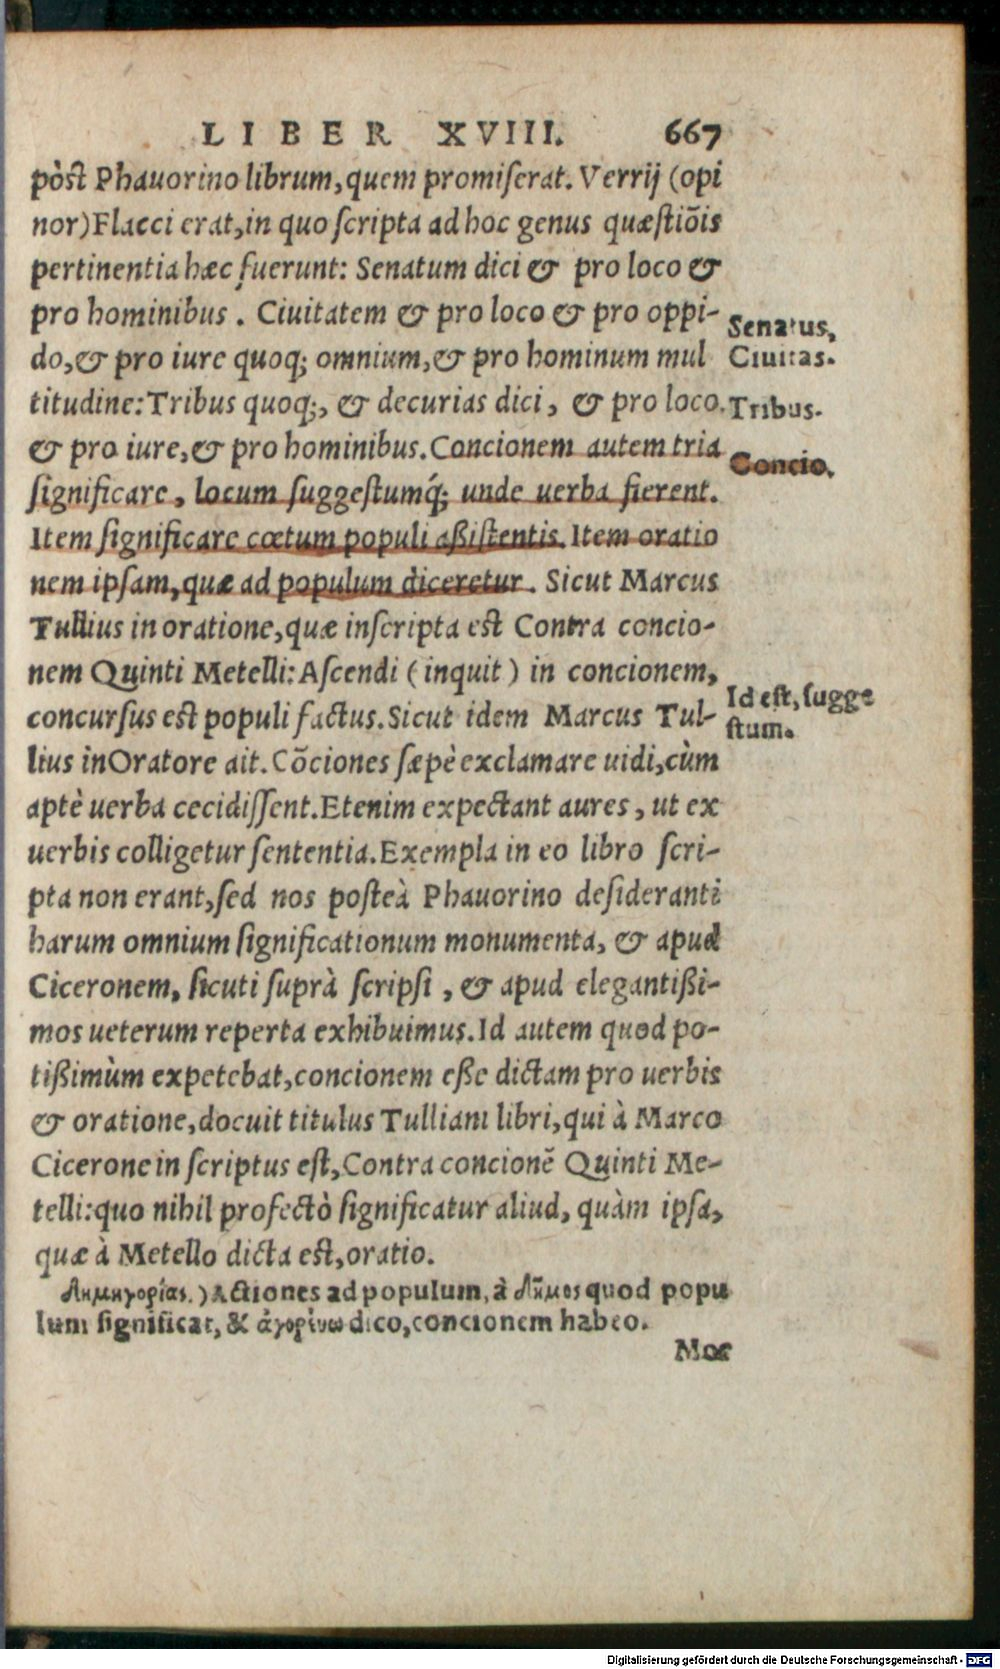 LIBER XVIII. 667
pòst Phauorino librum, quem promiserat. Verrij (opi
nor) Flacci erat, in quo scripta ad hoc genus quæstiõis
pertinentia hæc fuerunt: Senatum dici & pro loco &
pro hominibus. Ciuitatem & pro loco & pro oppi-
Senatus,
do, & pro iure quoq; omnium, & pro hominum mul
Ciuitas.
titudine: Tribus quoq;, & decurias dici, & pro loco.
Tribus.
& pro iure, & pro hominibus. Concionem autem tria
Concio.
significare, locum suggestumq́; unde uerba fierent.
Item significare cœtum populi aßistentis. Item oratio
nem ipsam, quæ ad populum diceretur. Sicut Marcus
Tullius in oratione, quæ inscripta est Contra concio-
nem Quinti Metelli: Ascendi (inquit) in concionem,
concursus est populi factus. Sicut idem Marcus Tul-
Id est, sugge
stum.
lius in Oratore ait. Cõciones sæpè exclamare uidi, cùm
aptè uerba cecidissent. Etenim expectant aures, ut ex
uerbis colligetur sententia. Exempla in eo libro scri-
pta non erant, sed nos posteà Phauorino desideranti
harum omnium significationum monumenta, & apud
Ciceronem, sicuti suprà scripsi, & apud elegantißi-
mos ueterum reperta exhibuimus. Id autem quod po-
tißimùm expetebat, concionem eße dictam pro uerbis
& oratione, docuit titulus Tulliani libri, qui à Marco
Cicerone in scriptus est, Contra concionẽ Quinti Me-
telli: quo nihil profectò significatur aliud, quàm ipsa,
quæ à Metello dicta est, oratio.
Δημηγορίας.) Actiones ad populum, à δῆμος quod popu
lum significat, & ἀγορέυω dico, concionem habeo.
Mos